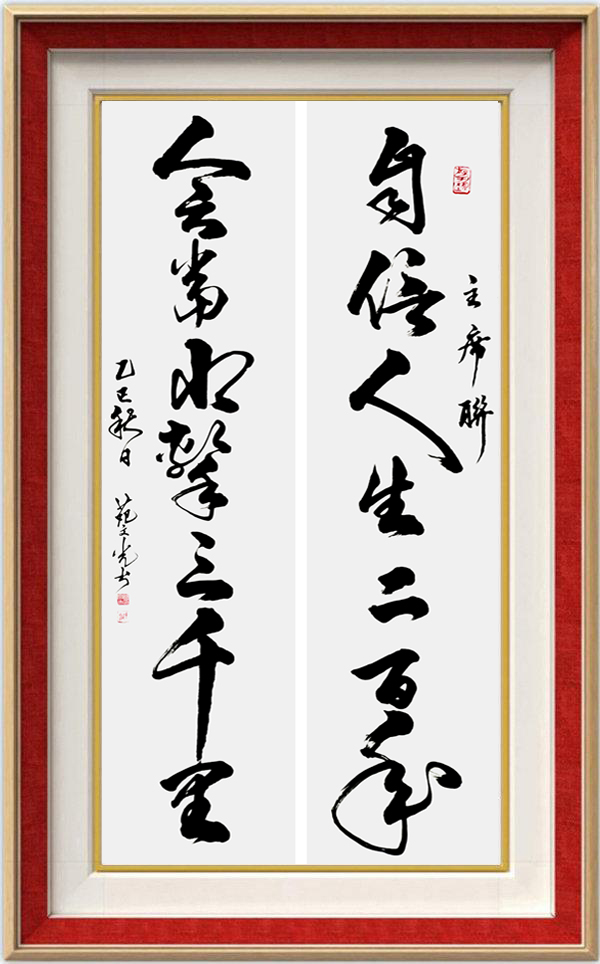 主席聯
自信人生二百年
會當水擊三千里
乙巳秋日 范文光书